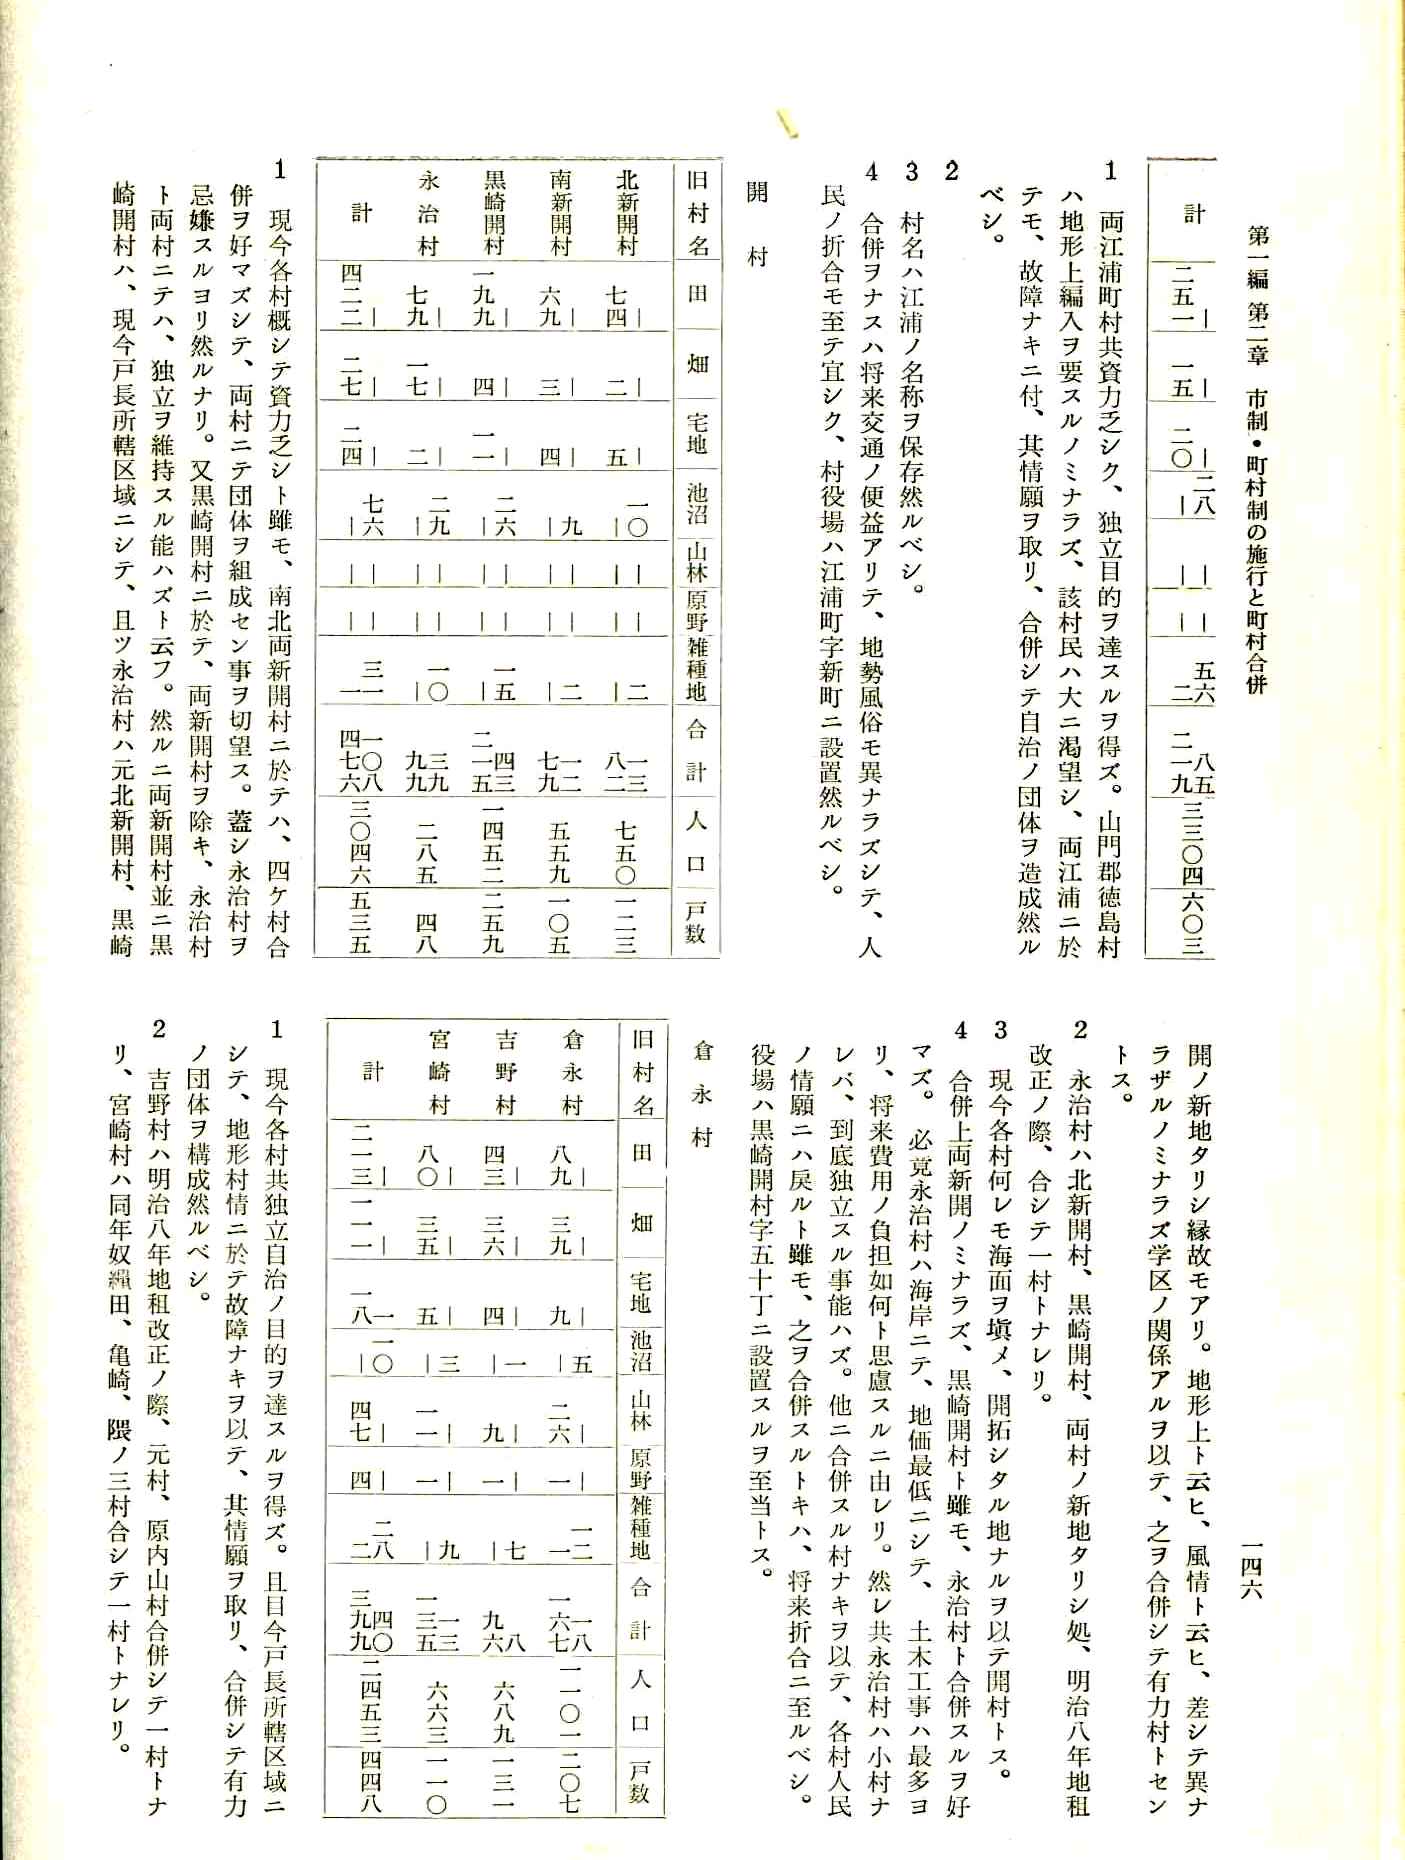 第一編 第二章 市制・町村制の施行と町村合併
一四六
計 二五一 | 一五 | 二〇 | 二八 | | | | | 五六 二 八五 二一九 三三〇四 六〇三
1 両江浦町村共資力乏シク、独立目的ヲ達スルヲ得ズ。山門郡徳島村
ハ地形上編入ヲ要スルノミナラズ、該村民ハ大ニ渇望シ、両江浦ニ於
テモ、故障ナキニ付、其情願ヲ取リ、合併シテ自治ノ団体ヲ造成然ル
ベシ。
2
3 村名ハ江浦ノ名称ヲ保存然ルベシ。
4 合併ヲナスハ将来交通ノ便益アリテ、地勢風俗モ異ナラズシテ、人
民ノ折合モ至テ宜シク、村役場ハ江浦町字新町ニ設置然ルベシ。
開村
旧村名 田 畑 宅地 池沼 山林 原野 雑種地 合計 人口 戸数
北新開村 | 七四 | 二 | 五 一〇 | | | | | 二 | 一三 八二 七五〇 一二三
南新開村 | 六九 | 三 | 四 九 | | | | | 二 | 一二 七九 五五九 一〇五
黒崎開村 | 一九九 | 四 | 一一 二六 | | | | | 一五 | 四三 二一五 一四五二 二五九
永治村 | 七九 | 一七 | 二 二九 | | | | | 一〇 | 三九 九九 二八五 四八
計 | 四二二 | 二七 | 二四 七六 | | | | | 三一 一 一〇八 四七六 三〇四六 五三五
1 現今各村概シテ資力乏シト雖モ、南北両新開村ニ於テハ、四ケ村合
併ヲ好マズシテ、両村ニテ団体ヲ組成セン事ヲ切望ス。蓋シ永治村ヲ
忌嫌スルヨリ然ルナリ。又黒崎開村ニ於テ、両新開村ヲ除キ、永治村
ト両村ニテハ、独立ヲ維持スル能ハズト云フ。然ルニ両新開村並ニ黒
崎開村ハ、現今戸長所轄区域ニシテ、且ツ永治村ハ元北新開村、黒崎
開ノ新地タリシ縁故モアリ。地形上ト云ヒ、風情ト云ヒ、差シテ異ナ
ラザルノミナラズ学区ノ関係アルヲ以テ、之ヲ合併シテ有力村トセン
トス。
2 永治村ハ北新開村、黒崎開村、両村ノ新地タリシ処、明治八年地租
改正ノ際、合シテ一村トナレリ。
3 現今各村何レモ海面ヲ塡メ、開拓シタル地ナルヲ以テ開村トス。
4 合併上両新開ノミナラズ、黒崎開村ト雖モ、永治村ト合併スルヲ好
マズ。必竟永治村ハ海岸ニテ、地価最低ニシテ、土木工事ハ最多ヨ
リ、将来費用ノ負担如何ト思慮スルニ由レリ。然レ共永治村ハ小村ナ
レバ、到底独立スル事能ハズ。他ニ合併スル村ナキヲ以テ、各村人民
ノ情願ニハ戻ルト雖モ、之ヲ合併スルトキハ、将来折合ニ至ルベシ。
役場ハ黒崎開村字五十丁ニ設置スルヲ至当トス。
倉永村
旧村名 田 畑 宅地 池沼 山林 原野 雑種地 合計 人口 戸数
倉永村 | 八九 | 三九 | 九 五 | | 二六 | 一 一二 一 一八 一六七 一一〇一 二〇七
吉野村 | 四三 | 三六 | 四 一 | | 九 | 一 七 | 八 九六 六八九 一三一
宮崎村 | 八〇 | 三五 | 五 三 | | 一一 | 一 九 | 一三 一三五 六六三 一一〇
計 | 二一三 | 一一一 一 一八 一〇 | | 四七 | 四 二八 二 四〇 三九九 二四五三 四四八
1 現今各村共独立自治ノ目的ヲ達スルヲ得ズ。且目今戸長所轄区域ニ
シテ、地形村情ニ於テ故障ナキヲ以テ、其情願ヲ取リ、合併シテ有力
ノ団体ヲ構成然ルベシ。
2 吉野村ハ明治八年地租改正ノ際、元村、原内山村合併シテ一村トナ
リ、宮崎村ハ同年奴糧田、亀崎、隈ノ三村合シテ一村トナレリ。